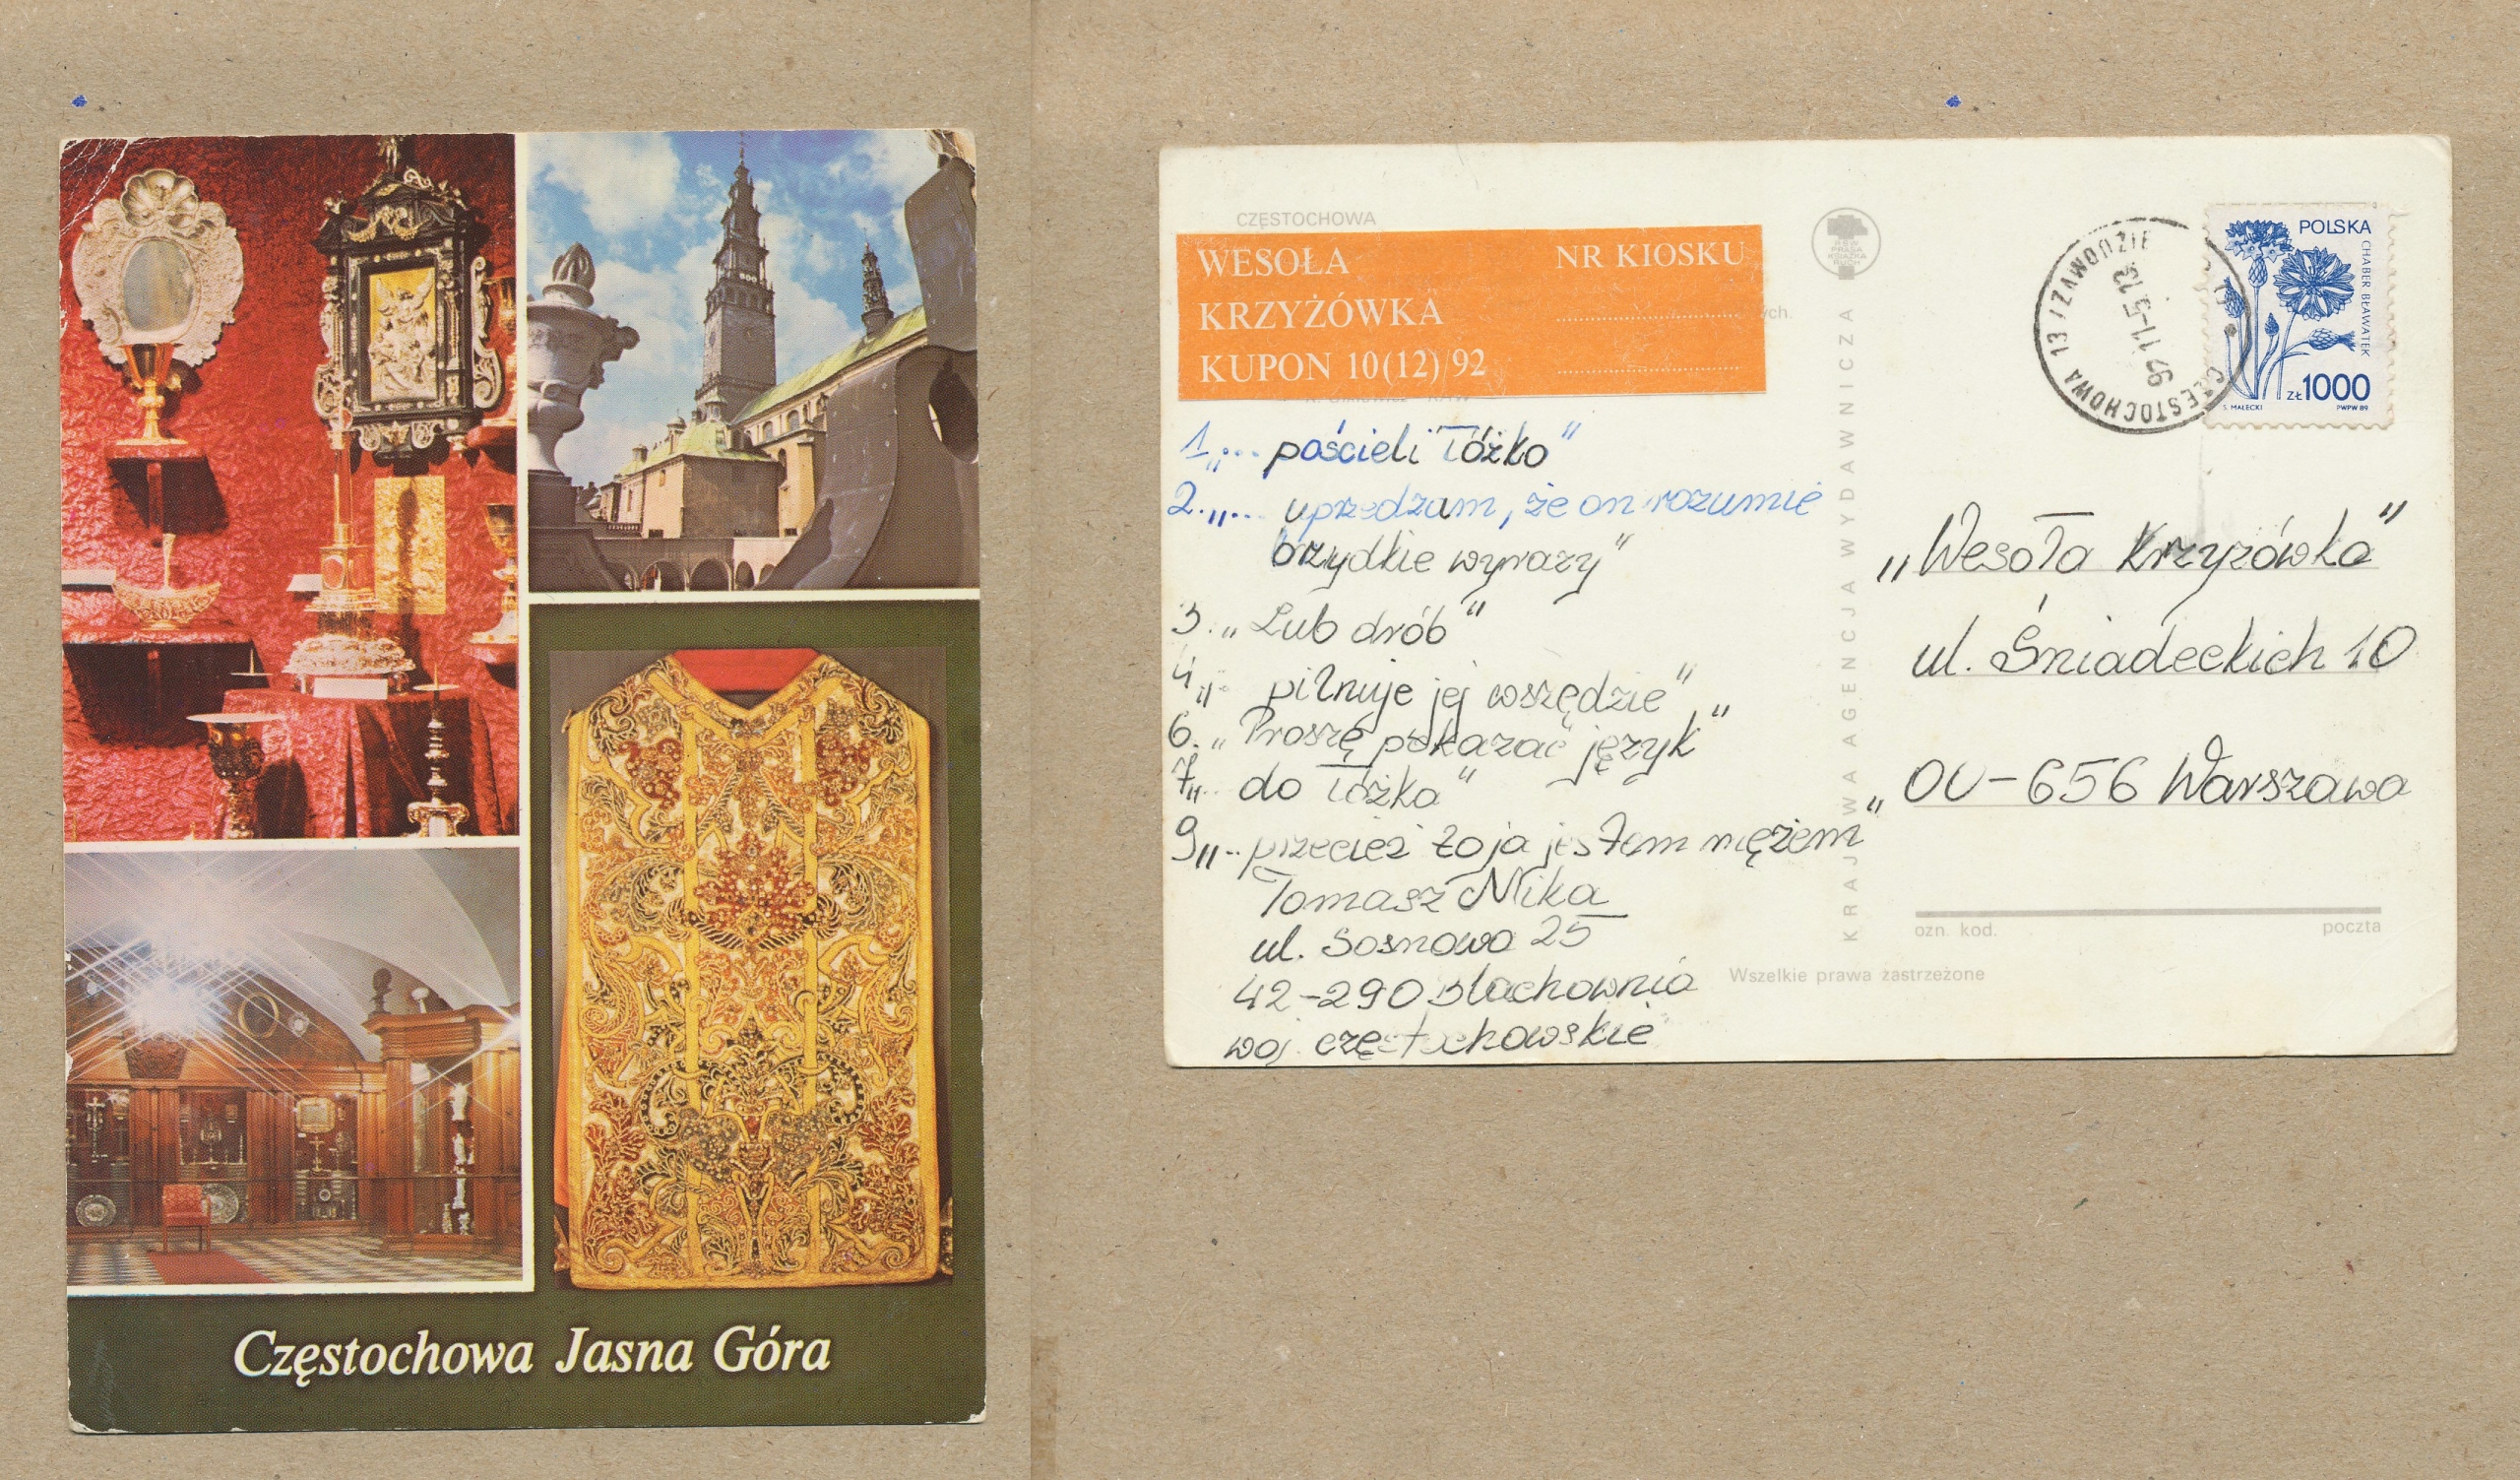 Częstochowa Jasna Góra
CZĘSTOCHOWA
WESOŁA
KRZYŻÓWKA
KUPON 10(12)/92
NR KIOSKU
ych.
1„... pościeli łóżko"
2.„... uprzedzam, że on rozumie
brzydkie wyrazy"
3. „Lub drób"
4„.. pilnuje jej wszędzie"
6. „Proszę pokazać język"
7„.. do łóżka"
9„.. przecież to ja jestem mężem"
Tomasz Nika
ul. Sosnowa 25
42-290 Blachownia
woj. częstochowskie
KRAJOWA AGENCJA WYDAWNICZA
RSW
PRASA
KSIĄŻKA
RUCH
CZĘSTOCHOWA 13 /ZAWODZIE
POLSKA
CHABER BŁAWATEK
ZŁ 1000
S. MAŁECKI
PWPW 89
„Wesoła Krzyżówka"
ul. Śniadeckich 10
00-656 Warszawa
ozn. kod.
poczta
Wszelkie prawa zastrzeżone